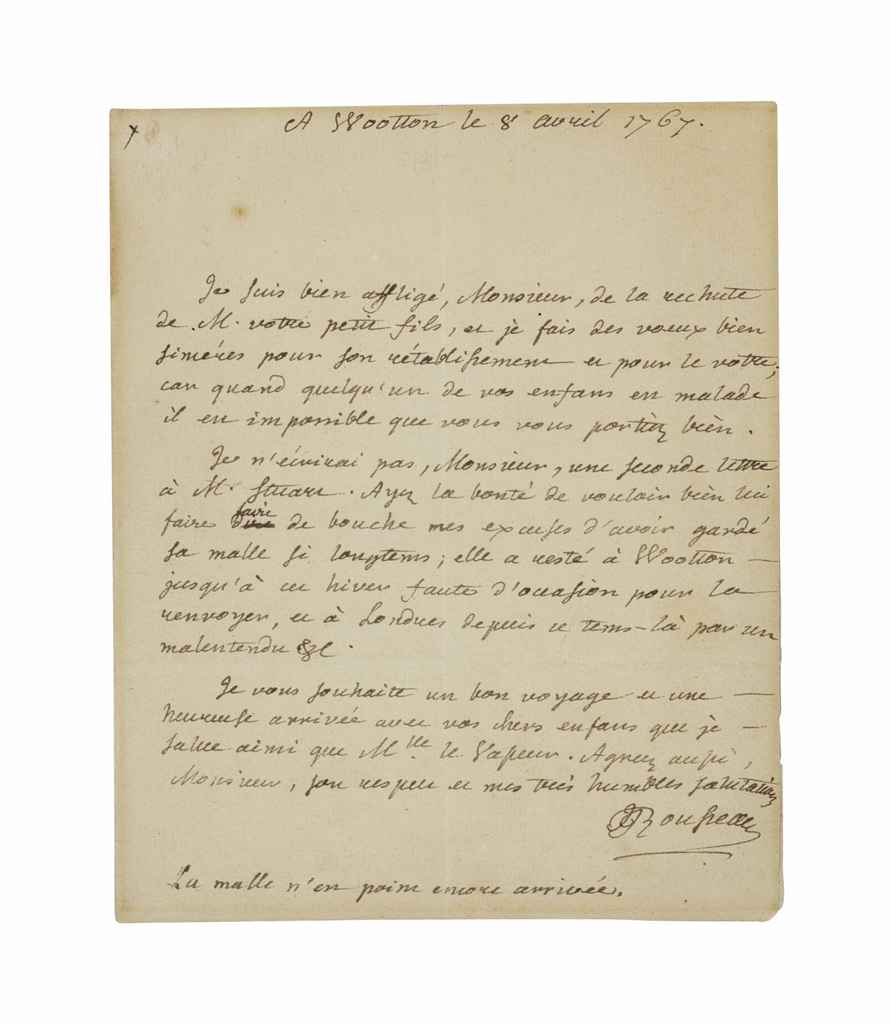 A Wootton le 8 avril 1767.
Je suis bien affligé, Monsieur, de la rechute
de M. votre petit fils, et je fais des voeux bien
sincéres pour son rétablissement et pour le votre;
car quand quelqu'un de vos enfans est malade
il est impossible que vous vous portiez bien.
Je n'écrirai pas, Monsieur, une seconde lettre
à M. Stuart. Ayez la bonté de vouloir bien lui
faire
faire de bouche mes excuses d'avoir gardé
sa malle si longtems; elle a resté à Wootton —
jusqu'à cet hiver faute d'occasion pour la —
renvoyer, et à Londres depuis ce tems-là par un
malentendu &c.
Je vous souhaite un bon voyage et une —
heureuse arrivée avec vos chers enfans que je —
salue ainsi que Mlle le Vasseur. Agréez aussi,
Monsieur, son respect et mes très humbles salutations
JJRousseau
La malle n'est point encore arrivée.